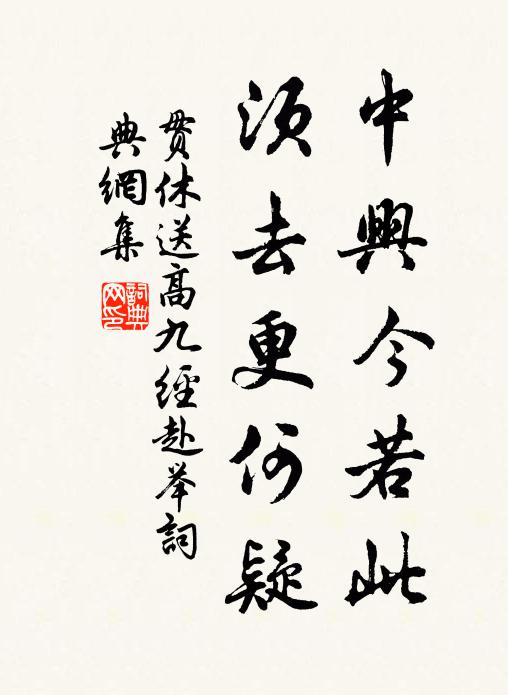 中興今若此
須去更何疑
贯休送高九經赴举詞
典網集
詞典网印